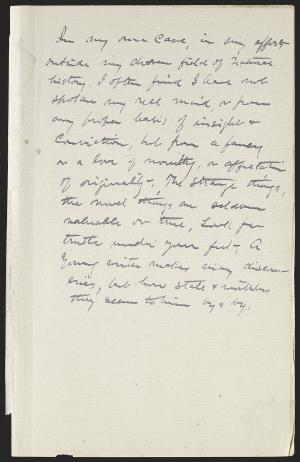 In my own case, in any effort
outside my chosen field of Natural
history, I often find I have not
spoken my real mind, or from
any proper basis of insight &
conviction, but from a fancy
or a love of novelty, or affectation
of originality. The strange things,
the novel things are seldom
valuable or true, Look for
truth under your feet. A
young writer makes many discov-
eries, but how stale & worthless
they seem to him by & by.